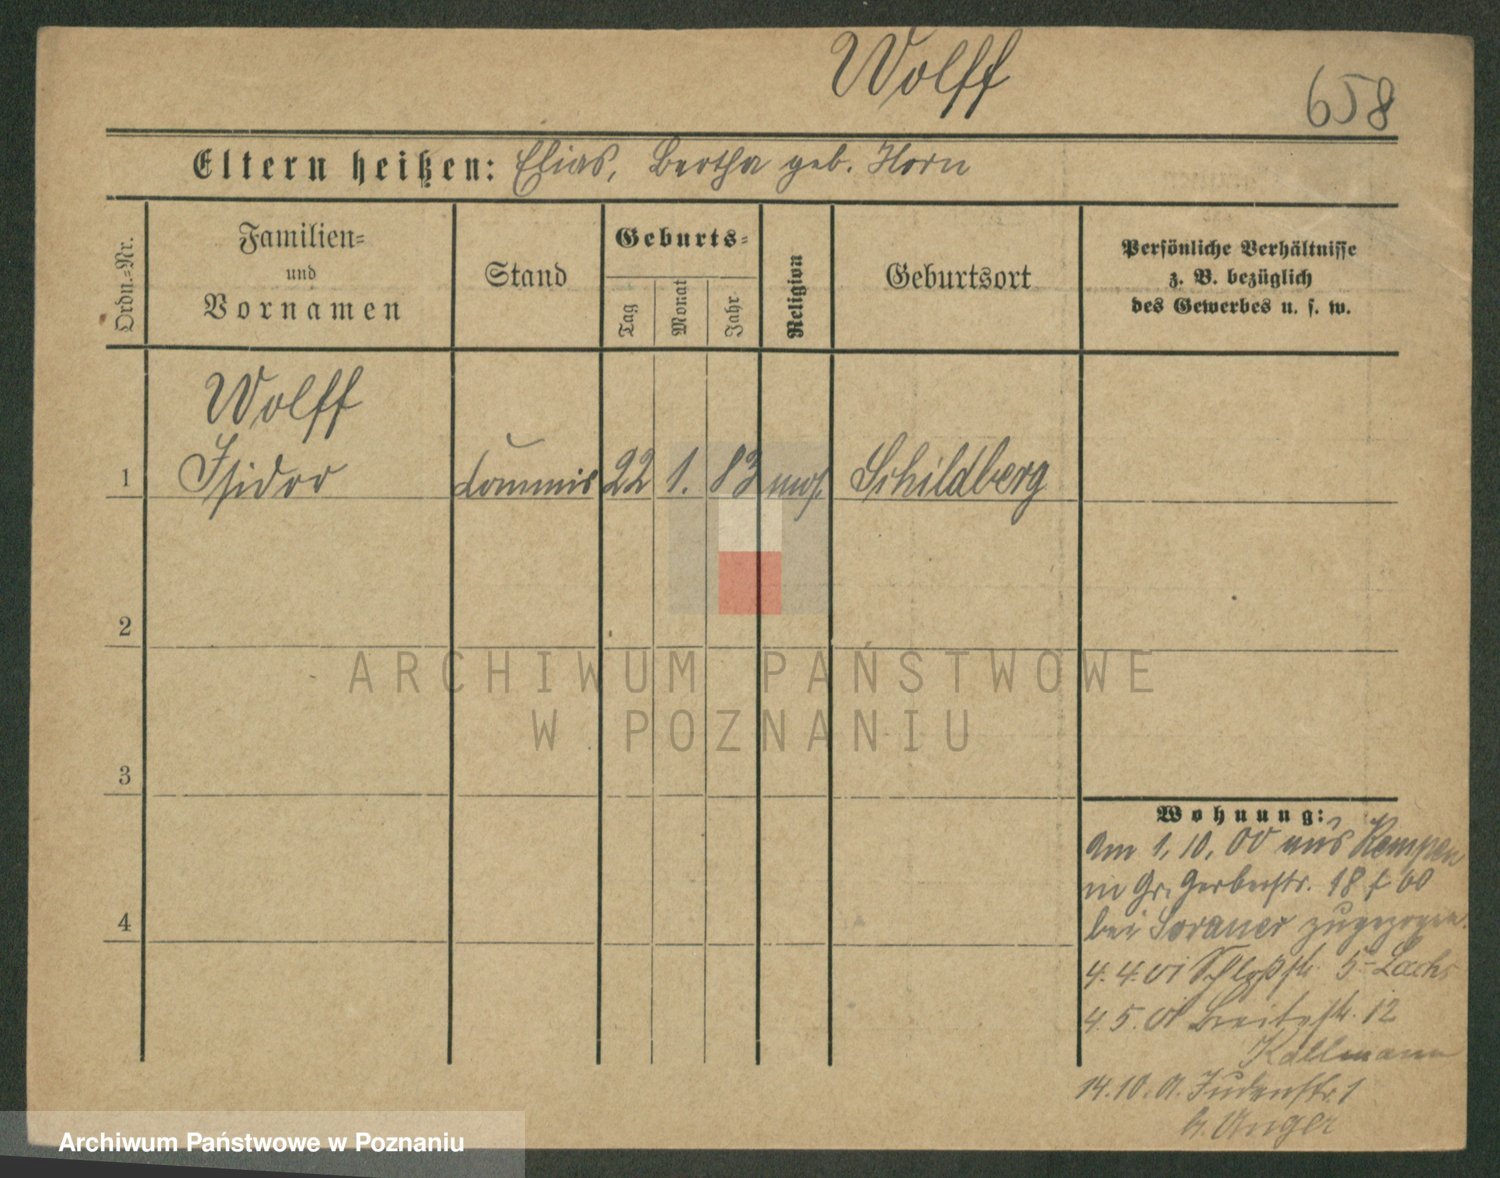 Wolff
658
Eltern heißen: Elias, Bertha geb. Horn
Ordn.-Nr.
Familien-
und
Vornamen
Stand
Geburts-
Tag
Monat
Jahr
Religion
Geburtsort
Persönliche Verhältnisse
z. B. bezüglich
des Gewerbes u. s. w.
Wolff
1 Isidor Commis 22 1. 83 mos. Schildberg
2
3
4
Wohnung:
Am 1. 10. 00 aus Kempen
in Gr. Gerberstr. 18
bei Soraner zugezogen.
4. 4. 01 Schloßstr. 5 Lachs
4. 5. 01 Breitestr. 12
Kallmann
14. 10. 01. Judenstr. 1
b. Unger
ARCHIWUM PAŃSTWOWE
W POZNANIU
Archiwum Państwowe w Poznaniu